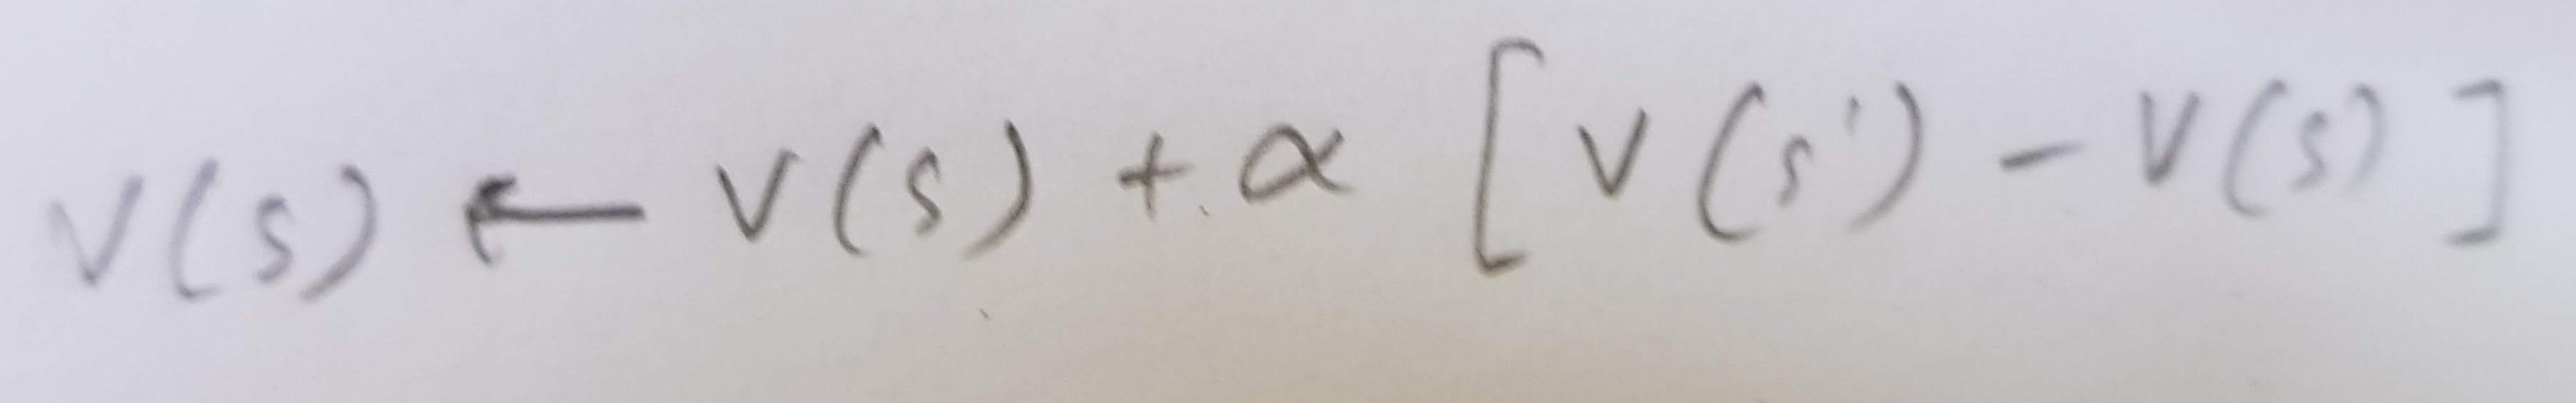 V(s) ← V(s) + α [V(s') - V(s)]